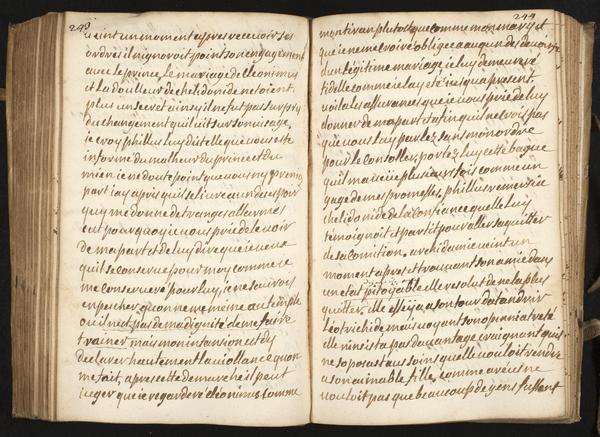 243
vint un moment apres recevoir ses
ordres il n'ignoroit point son engagement
avec le prince le mariage de cleonimus
et la doulleur de chelidonide n'estoient
plus un secret ainsy il ne fut pas surpris
du changement qu'il vit sur son visage
je voy phillus luy dit elle que vous este
informé du malheur du prince et du
mien je ne doute point que vous n'y preniez
part j'ay apris qu'il se livre au desespoir
qui me donne d'etranges allarmes
c'est pourquoy je vous prie de le voir
de ma part et de luy dire que je veux
qu'il se conserve pour moy comme je
me conserve pour luy, je ne scaurois
enpescher qu'on ne me mene au temple
ou il n'est pas de ma dignité de me faire
trainer mais mon intansion est d'y
declarer hautement la viollance qu'on
me fait, apres cette demarche il peut
juger que je regarderé cleonimus comme
244
mon tiran plutost que comme mon mary et
que je ne me croiré obligée a aucun des devoirs
d'un legitime mariage je luy demeureré
fidelle comme je l'ay esté jusqu'a present
voila les assurances que je vous prie de luy
donner de ma part et afin qu'il ne croie pas
que vous luy parlez sans mon ordre
pour le consoller, portez luy cette bague
qu'il m'a veüe plusieurs fois comme un
gage de mes promesses, phillus remercia
chelidonide de la confiance que elle luy
temoignoit et partit pour aller s'aquitter
de sa commition. archidamie vint un
moment apres et trouvant son amie dans
un etat pitoyable elle resolut de ne la plus
quitter. elle essaya a son tour d'atandrir
leotichide mais voyant son opiniatreté
elle n'insista pas davantage craignant qu'il
ne s'oposast aux soins quelle vouloit rendre
a son aimable fille, comme areus ne
vouloit pas que beaucoup de gens fussent